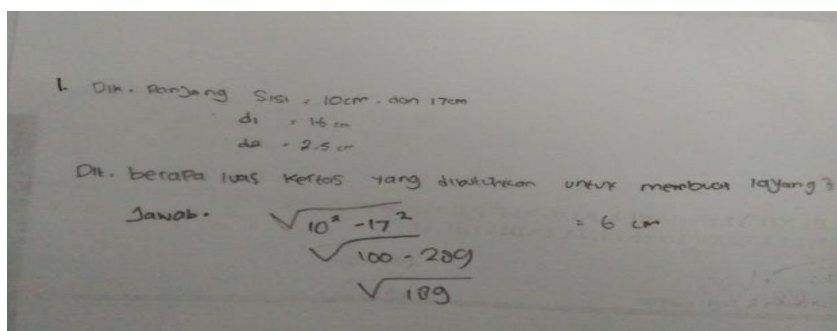 1. Dik. Panjang Sisi = 10cm. dan 17cm
d1 = 16 cm
d2 = 2.5 cm
Dit. berapa luas kertas yang dibutuhkan untuk membuat layang?
Jawab. √10² - 17² = 6 cm
√100 - 289
√189